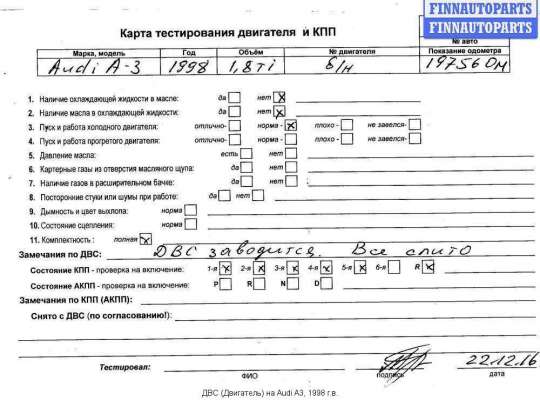 FINNAUTOPARTS
FINNAUTOPARTS
Карта тестирования двигателя и КПП
№ авто
Марка, модель Год Объём № двигателя Показание одометра
Audi A-3 1998 1,8Ti б/н 197560м
1. Наличие охлаждающей жидкости в масле: да нет x
2. Наличие масла в охлаждающей жидкости: да нет x
3. Пуск и работа холодного двигателя: отлично- норма - x плохо - не завелся-
4. Пуск и работа прогретого двигателя: отлично- норма - плохо - не завелся-
5. Давление масла: есть нет
6. Картерные газы из отверстия масляного щупа: да нет
7. Наличие газов в расширительном бачке: да нет
8. Посторонние стуки или шумы при работе: да нет
9. Дымность и цвет выхлопа: норма
10. Состояние сцепления: норма
11. Комплектность: полная x
Замечания по ДВС: ДВС заводится. Все слито
Состояние КПП - проверка на включение: 1-я x 2-я x 3-я x 4-я x 5-я x 6-я R x
Состояние АКПП - проверка на включение: P R N D
Замечания по КПП (АКПП):
Снято с ДВС (по согласованию!):
Тестировал: 22.12.16
ФИО подпись дата
ДВС (Двигатель) на Audi A3, 1998 г.в.